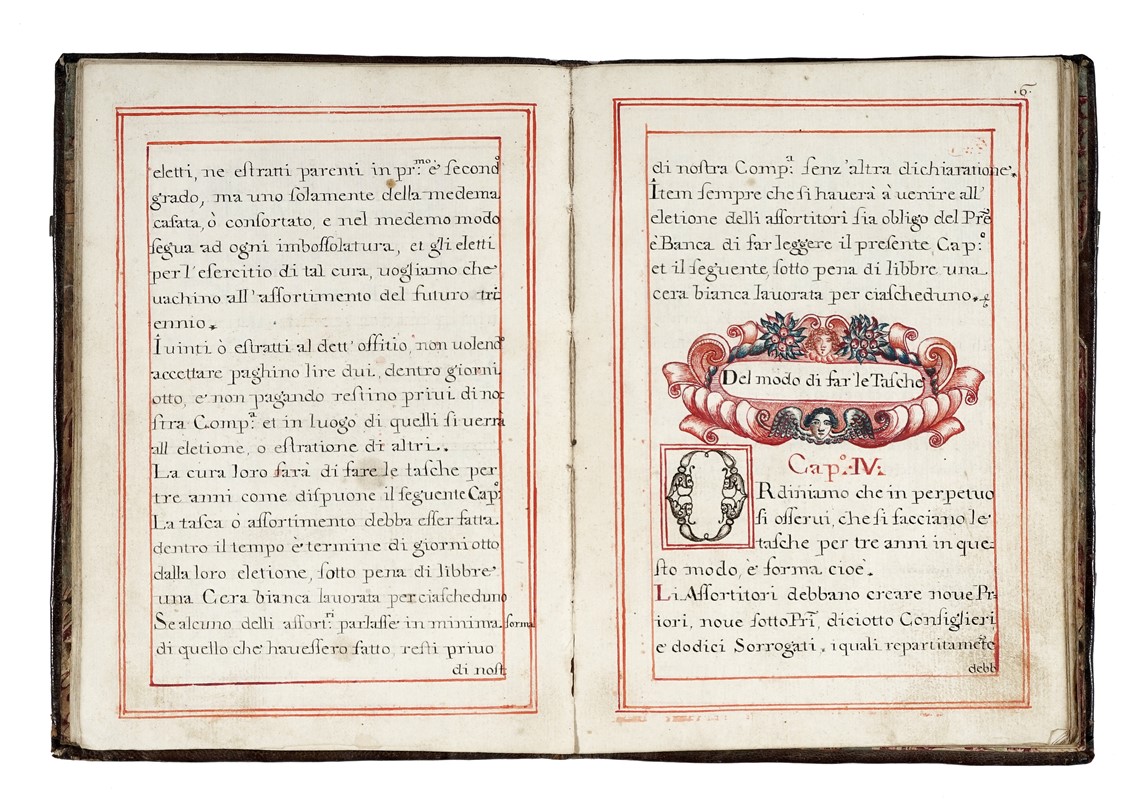 eletti, ne estratti parenti in pr:mo è secondo
grado, ma uno solamente della medema
casata, ò consortato, e nel medemo modo
segua ad ogni imbossolatura, et gli eletti
per l'esercitio di tal cura, uogliamo che
uachino all'assortimento del futuro tri
ennio.
I uinti ò estratti al dett' offitio, non uolendo
accettare paghino lire dui, dentro giorni
otto, e non pagando restino priui di no:
stra Comp:a et in luogo di quelli si uerra
all eletione, o estratione di altri.
La cura loro sara di fare le tasche per
tre anni come dispuone il seguente Cap:o
La tasca ò assortimento debba esser fatta
dentro il tempo è termine di giorni otto
dalla loro eletione, sotto pena di libbre
una Cera bianca lauorata per ciascheduno
Se alcuno delli assort:ri parlasse in minima forma
di quello che hauessero fatto, resti priuo
di nost:
.6.
di nostra Comp:a senz'altra dichiaratione.
Item sempre che si hauerà à uenire all'
eletione delli assortitori sia obligo del Pre
è Banca di far leggere il presente Cap:o
et il seguente, sotto pena di libbre una
cera bianca lauorata per ciascheduno.
Del modo di far le Tasche
Cap:o IV:
ORdiniamo che in perpetuo
si osserui, che si facciano le
tasche per tre anni in que:
sto modo, è forma cioè.
Li Assortitori debbano creare noue Pr:
iori, noue sotto Pri, diciotto Consiglieri
e dodici Sorrogati, i quali repartitamete
debb